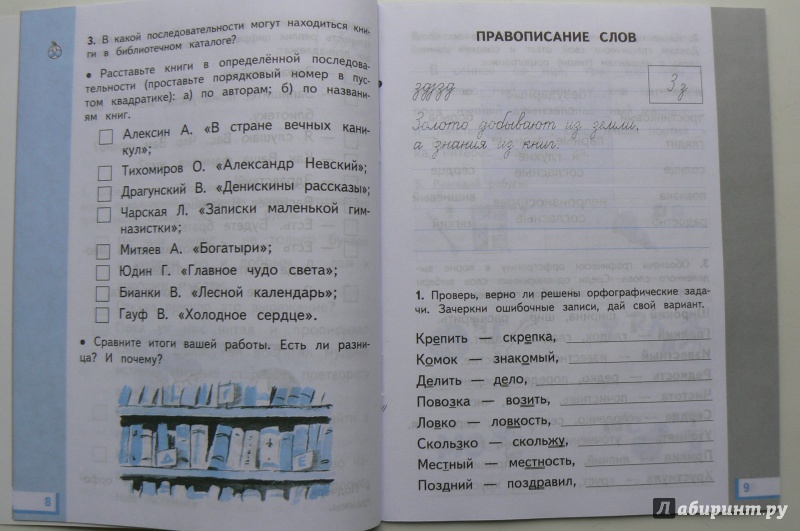 3. В какой последовательности могут находиться кни-
ги в библиотечном каталоге?
• Расставьте книги в определённой последова-
тельности (проставьте порядковый номер в пус-
том квадратике): а) по авторам; б) по названи-
ям книг.
Алексин А. «В стране вечных кани-
кул»;
Тихомиров О. «Александр Невский»;
Драгунский В. «Денискины рассказы»;
Чарская Л. «Записки маленькой гим-
назистки»;
Митяев А. «Богатыри»;
Юдин Г. «Главное чудо света»;
Бианки В. «Лесной календарь»;
Гауф В. «Холодное сердце».
• Сравните итоги вашей работы. Есть ли разни-
ца? И почему?
А Е
8
ПРАВОПИСАНИЕ СЛОВ
З з
Золото добывают из земли,
а знания из книг.
1. Проверь, верно ли решены орфографические зада-
чи. Зачеркни ошибочные записи, дай свой вариант.
Крепить — скрепка,
Комок — знакомый,
Делить — дело,
Повозка — возить,
Ловко — ловкость,
Скользко — скольжу,
Местный — местность,
Поздний — поздравил,
9
Лабиринт.ру